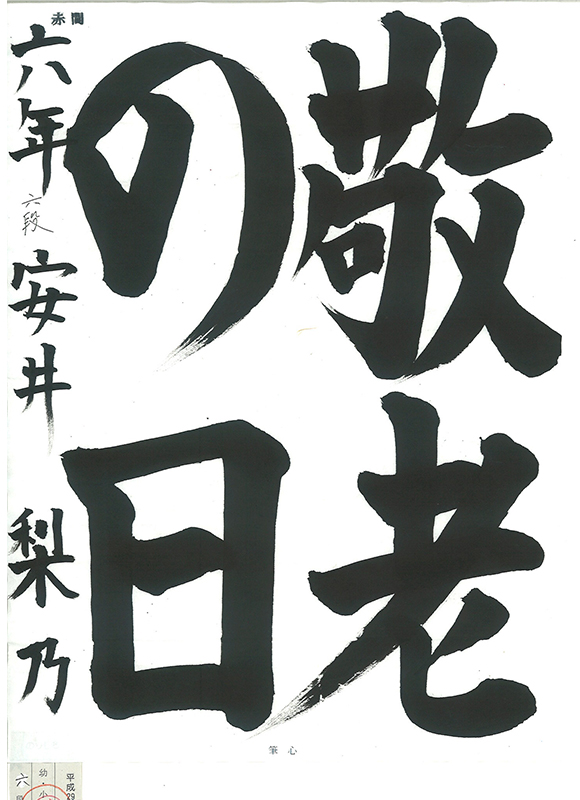 敬老
の日
赤間
六年 六段 安井 梨乃
心筆
平成29
幼・少
六段